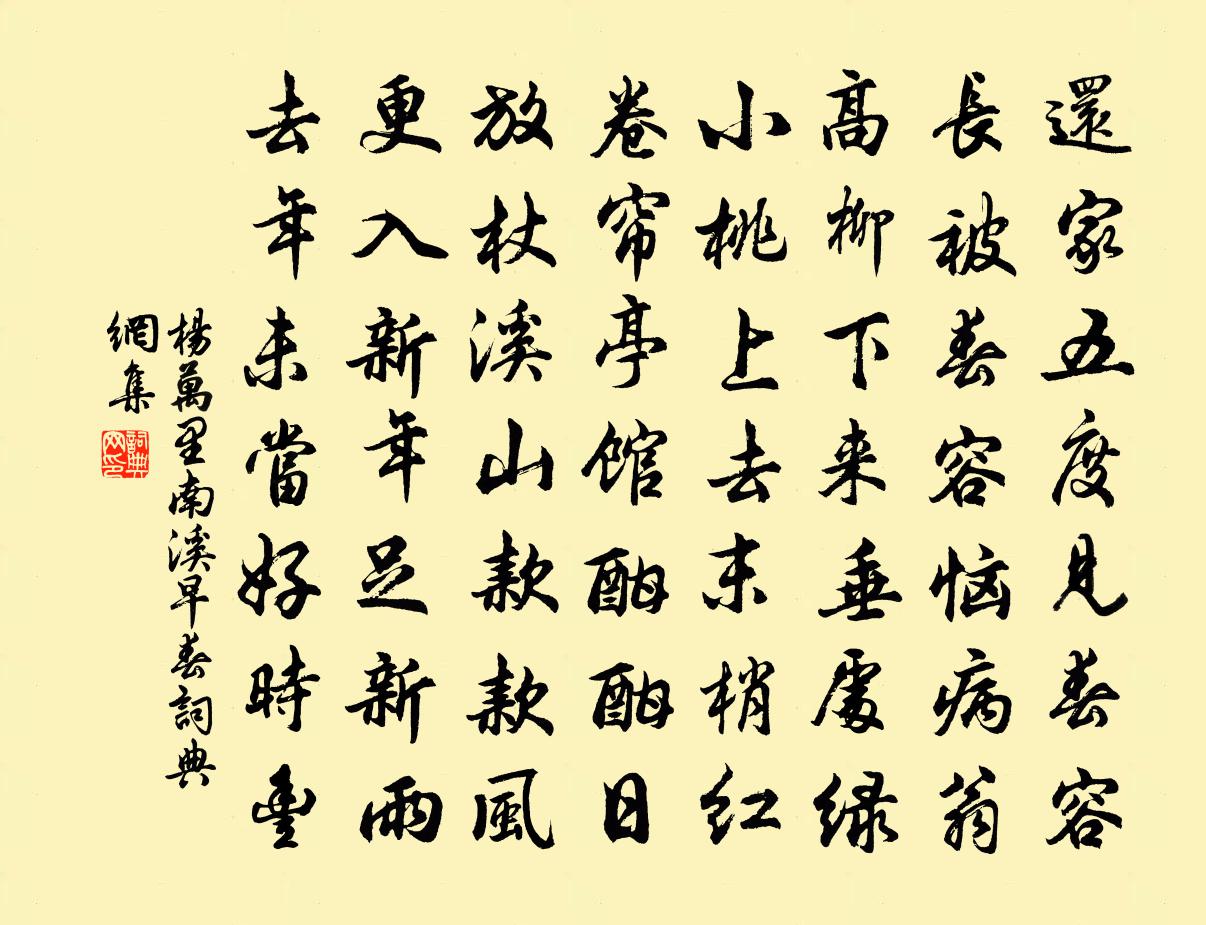 還家五度見春容
長被春容恼病翁
高柳下来垂處緑
小桃上去末梢紅
卷帘亭館酣酣日
放杖溪山款款風
更入新年足新雨
去年未當好時豊
楊萬里南溪早春詞典
網集
詞典
网印